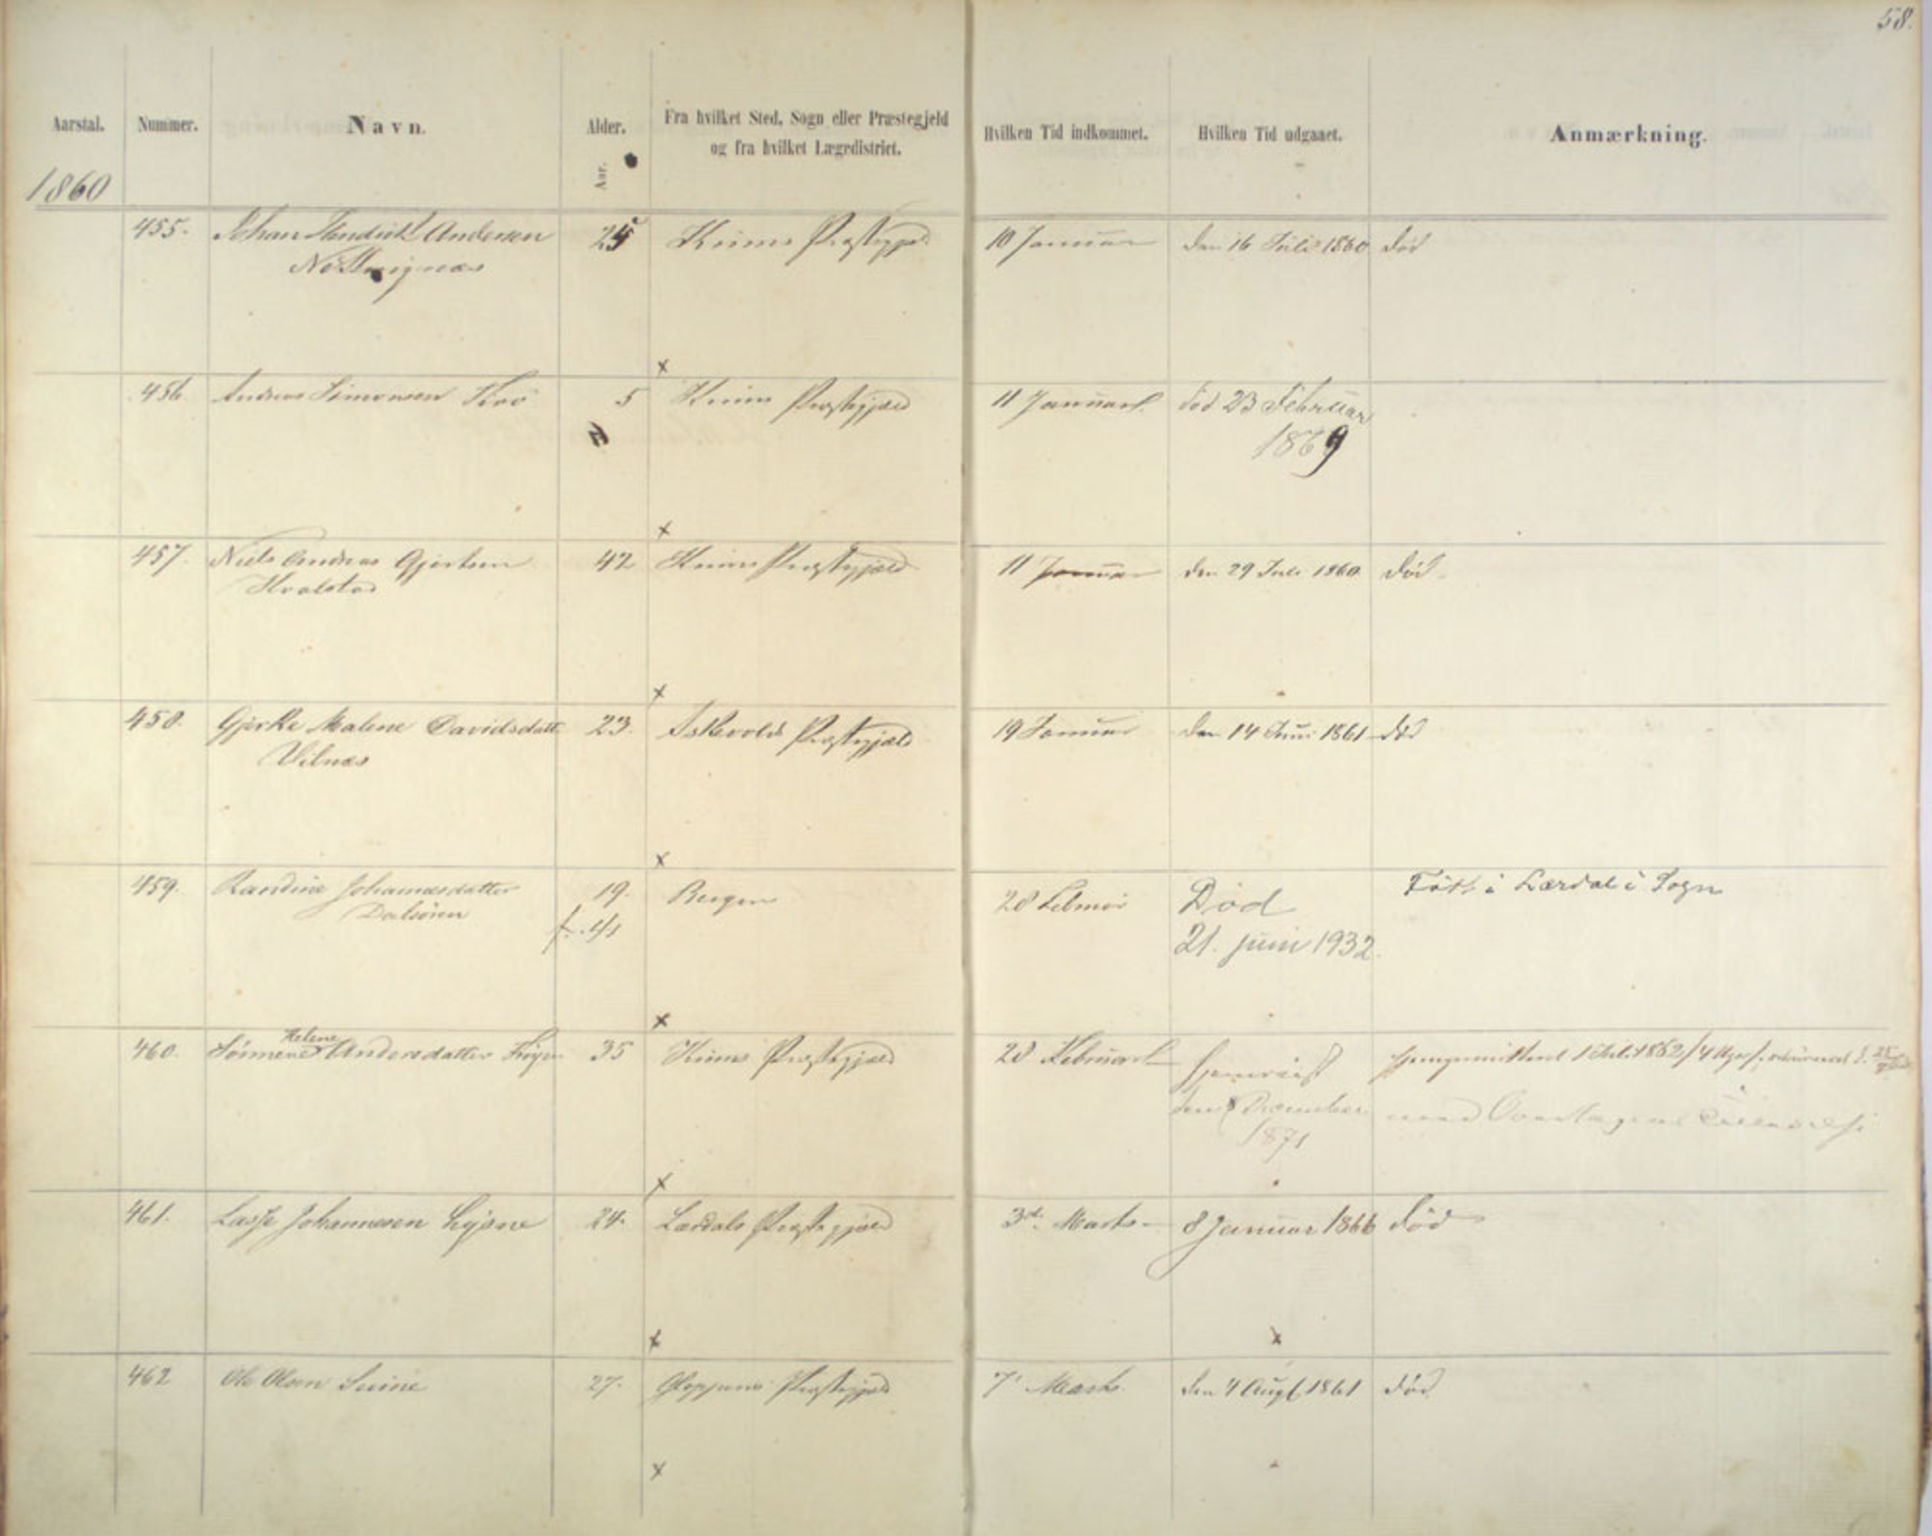 58.
Aarstal. Nummer. Navn. Alder. Fra hvilket Sted, Sogn eller Præstegjeld Hvilken Tid indkommet. Hvilken Tid udgaaet. Anmærkning.
og fra hvilket Lægedistrict.
Aar.
1860
455. Johan Hendrik Andersen 25 Kinns Præstegjeld 10 Januar den 16 Juli 1860 død
456. Andreas Simonsen 5 Kinns Præstegjæld 11 Januar død 23 Februar
1869
457. Niels Andreas Gjertsen 42 Kinns Præstegjæld 11 Januar den 29 Juli 1860 død
Hvalstad
458. Gjerke Malene Davidsdatt 23. Askevolds Præstegjæld 19 Januar den 14 Juni 1861 død
Vilnæs
459. Randine Johannesdatter 19. Bergen 28 Februar Død Født i Lærdal i Sogn
Dalsøren 21. juni 1932.
Helene
460. Andersdatter 35 Kinns Præstegjæld 28 Februar Hjemreist Hjempermitteret 1 Juli 1862
den 8 December med Overlægens Tilladelse
1871
461. Lasse Johannesen Lysne 24. Lærdals Præstegjæld 3d. Marts 8 Januar 1866 død
462 Ole Olsen 27. Gloppens Præstegjæld 7 Marts. den 4 Augt. 1861 død